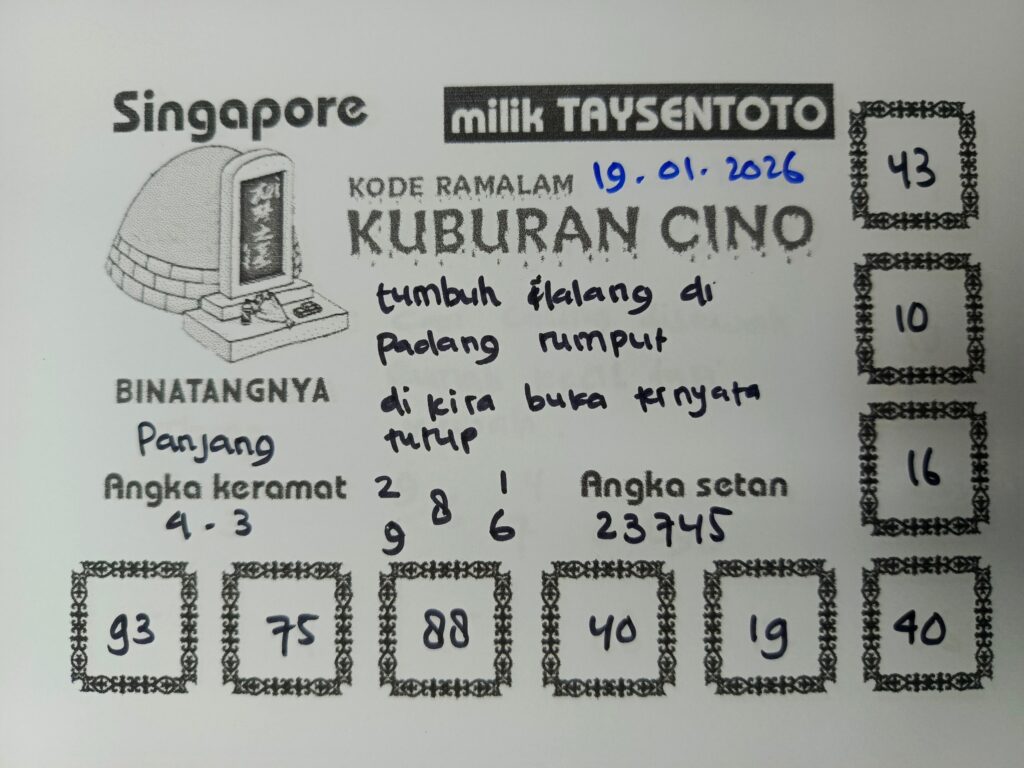 Singapore
milik TAYSENTOTO
KODE RAMALAM 19.01.2026
KUBURAN CINO
tumbuh ilalang di
Padang rumput
di kira buka ternyata
tutup
BINATANGNYA
Panjang
Angka keramat
4 - 3
2 1
8
9 6
Angka setan
23745
43
10
16
93 75 88 40 19 40